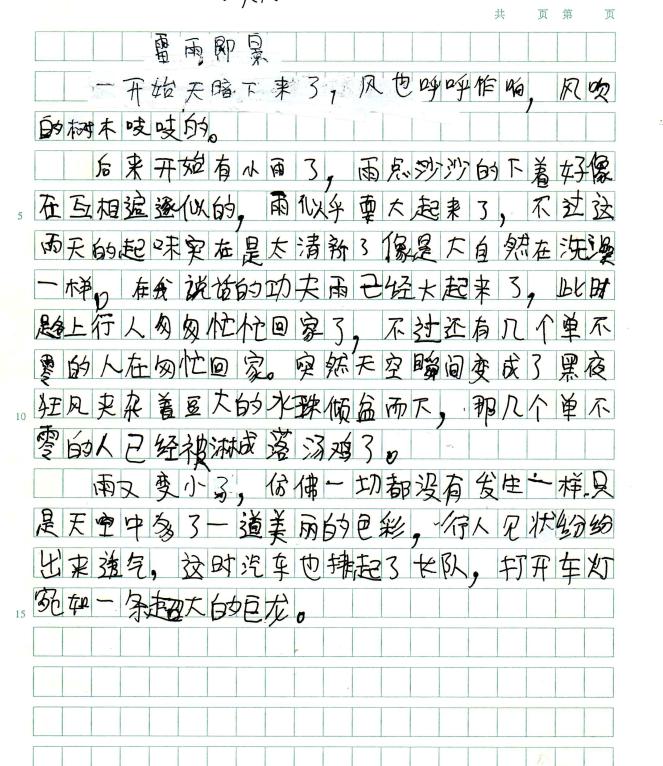 共 页 第 页
雷雨即景
一开始天暗下来了,风也呼呼作响,风吹
的树木吱吱的。
后来开始有小雨了,雨点沙沙的下着好像
5
在互相追逐似的,雨似乎要大起来了,不过这
雨天的起味实在是太清新了像是大自然在洗澡
一样,在我说话的功夫雨已经大起来了,此时
路上行人匆匆忙忙回家了,不过还有几个单不
零的人在匆忙回家。突然天空瞬间变成了黑夜
10
狂风夹杂着豆大的水珠倾盆而下,那几个单不
零的人已经被淋成落汤鸡了。
雨又变小了,仿佛一切都没有发生一样.只
是天空中多了一道美丽的色彩,行人见状纷纷
出来透气,这时汽车也排起了长队,打开车灯
15
宛如一条超大的巨龙。